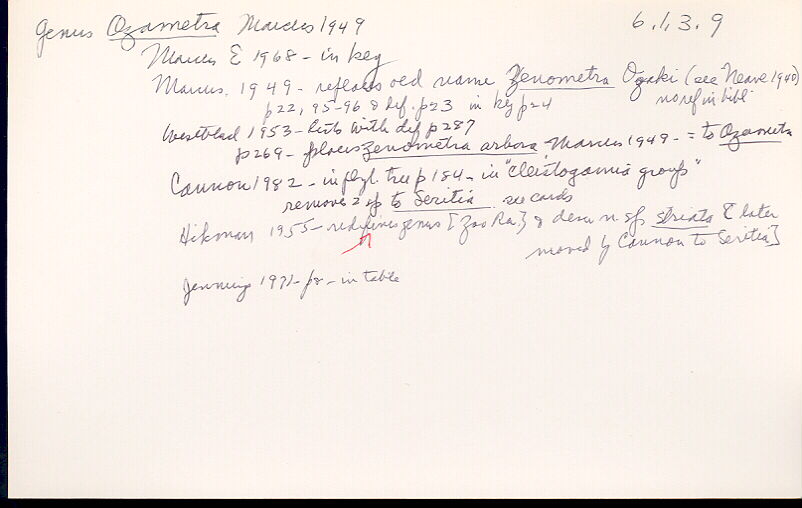 Genus Ozametra Marcus 1949 6.1.3.9
Marcus E 1968 - in key
Marcus, 1949 - replaces old name Zenometra Ozaki (see Neave 1940)
p22, 95-96 & def. p23 in key p24 no ref in bibl
Westblad 1953 - lists with def p287
p269 - places Zenometra arbora Marcus 1949 - = to Ozametra
Cannon 1982 - in phyl. tree p 184 - in "Cleistogamia group"
removes 2 sp to Seritia see cards
Hikman 1955 - redefines genus [Zoo Rec.] & descr n. sp. striata & later
moved by Cannon to Seritia]
Jennings 1971 - p8 - in table